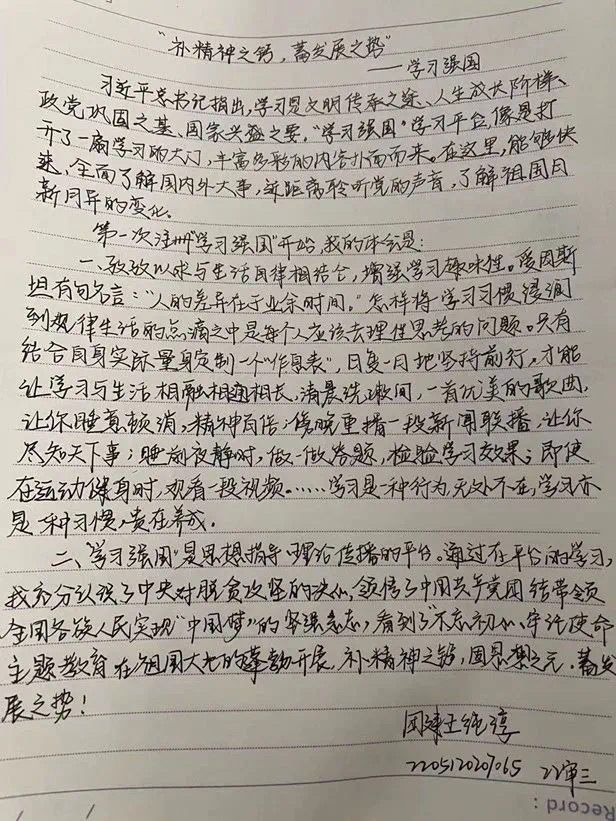 “补精神之钙，蓄发展之势”
——学习强国
习近平总书记指出，学习是文明传承之途、人生成长阶梯、
政党巩固之基、国家兴盛之要。“学习强国”学习平台，像是打
开了一扇学习的大门，丰富多彩的内容扑面而来。在这里，能够快
速、全面了解国内外大事，近距离聆听党的声音，了解祖国日
新月异的变化。
第一次注册“学习强国”开始，我的体会是：
一、孜孜以求与生活自律相结合，增强学习趣味性。爱因斯
坦有句名言：“人的差异在于业余时间。”怎样将学习习惯浸润
到规律生活的点滴之中是每个人应该去理性思考的问题。只有
结合自身实际量身定制一个“作息表”，日复一日地坚持前行，才能
让学习与生活相融相通相长，清晨洗漱间，一首优美的歌曲，
让你睡意顿消，精神百倍；傍晚重播一段新闻联播，让你
尽知天下事；睡前夜静时，做一做答题，检验学习效果；即使
在运动健身时，观看一段视频……学习是一种行为，无处不在，学习亦
是一种习惯，贵在养成。
二、“学习强国”是思想指导、理论传播的平台。通过在平台的学习，
我充分认识了中央对脱贫攻坚的决心，领悟了中国共产党团结带领
全国各族人民实现“中国梦”的坚强意志，看到了“不忘初心、牢记使命
主题教育在祖国大地的蓬勃开展，补精神之钙，固思想之元，蓄发
展之势！
王纯淳
22051202065 22审三
Record: